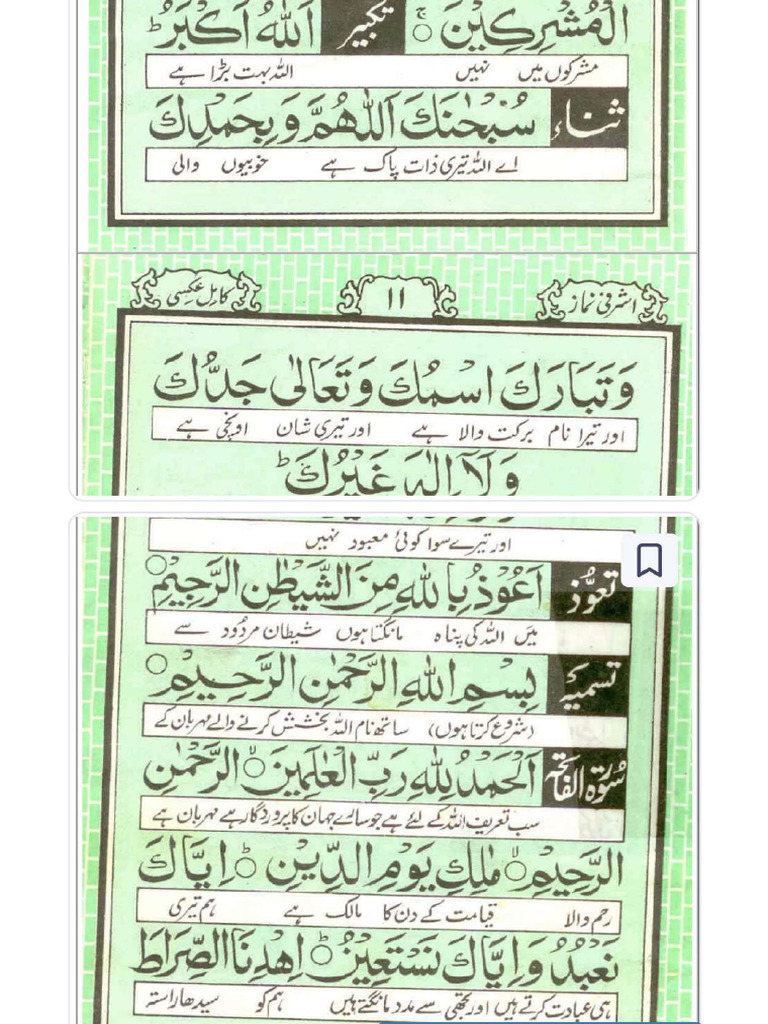 الْمُشْرِكِيْنَ ۚ تکبیر اَللّٰهُ اَكْبَرُ ؕ
مشرکوں میں نہیں اللہ بہت بڑا ہے
ثناء سُبْحٰنَكَ اَللّٰهُمَّ وَ بِحَمْدِكَ
اے اللہ تیری ذات پاک ہے خوبیوں والی
اشرفی نماز ۱۱ کامل عکسی
وَ تَبَارَكَ اسْمُكَ وَ تَعَالٰى جَدُّكَ
اور تیرا نام برکت والا ہے اور تیری شان اونچی ہے
وَ لَآ اِلٰهَ غَيْرُكَ ؕ
اور تیرے سوا کوئی معبود نہیں
تعوّذ اَعُوْذُ بِاللّٰهِ مِنَ الشَّيْطٰنِ الرَّجِيْمِ ○
میں اللہ کی پناہ مانگتا ہوں شیطان مردُود سے
تسمیہ بِسْمِ اللّٰهِ الرَّحْمٰنِ الرَّحِيْمِ ○
(شروع کرتا ہوں) ساتھ نام اللہ بخشش کرنے والے مہربان کے
سُوْرَةُ الفَاتِحَة اَلْحَمْدُ لِلّٰهِ رَبِّ الْعٰلَمِيْنَ ۙ○ الرَّحْمٰنِ
سب تعریف اللہ کے لئے ہے جو سارے جہان کا پروردگار ہے مہربان ہے
الرَّحِيْمِ ۙ○ مٰلِكِ يَوْمِ الدِّيْنِ ؕ○ اِيَّاكَ
رحم والا قیامت کے دن کا مالک ہے ہم تیری
نَعْبُدُ وَ اِيَّاكَ نَسْتَعِيْنُ ؕ○ اِهْدِنَا الصِّرَاطَ
ہی عبادت کرتے ہیں اور تجھی سے مدد مانگتے ہیں ہم کو سیدھا راستہ